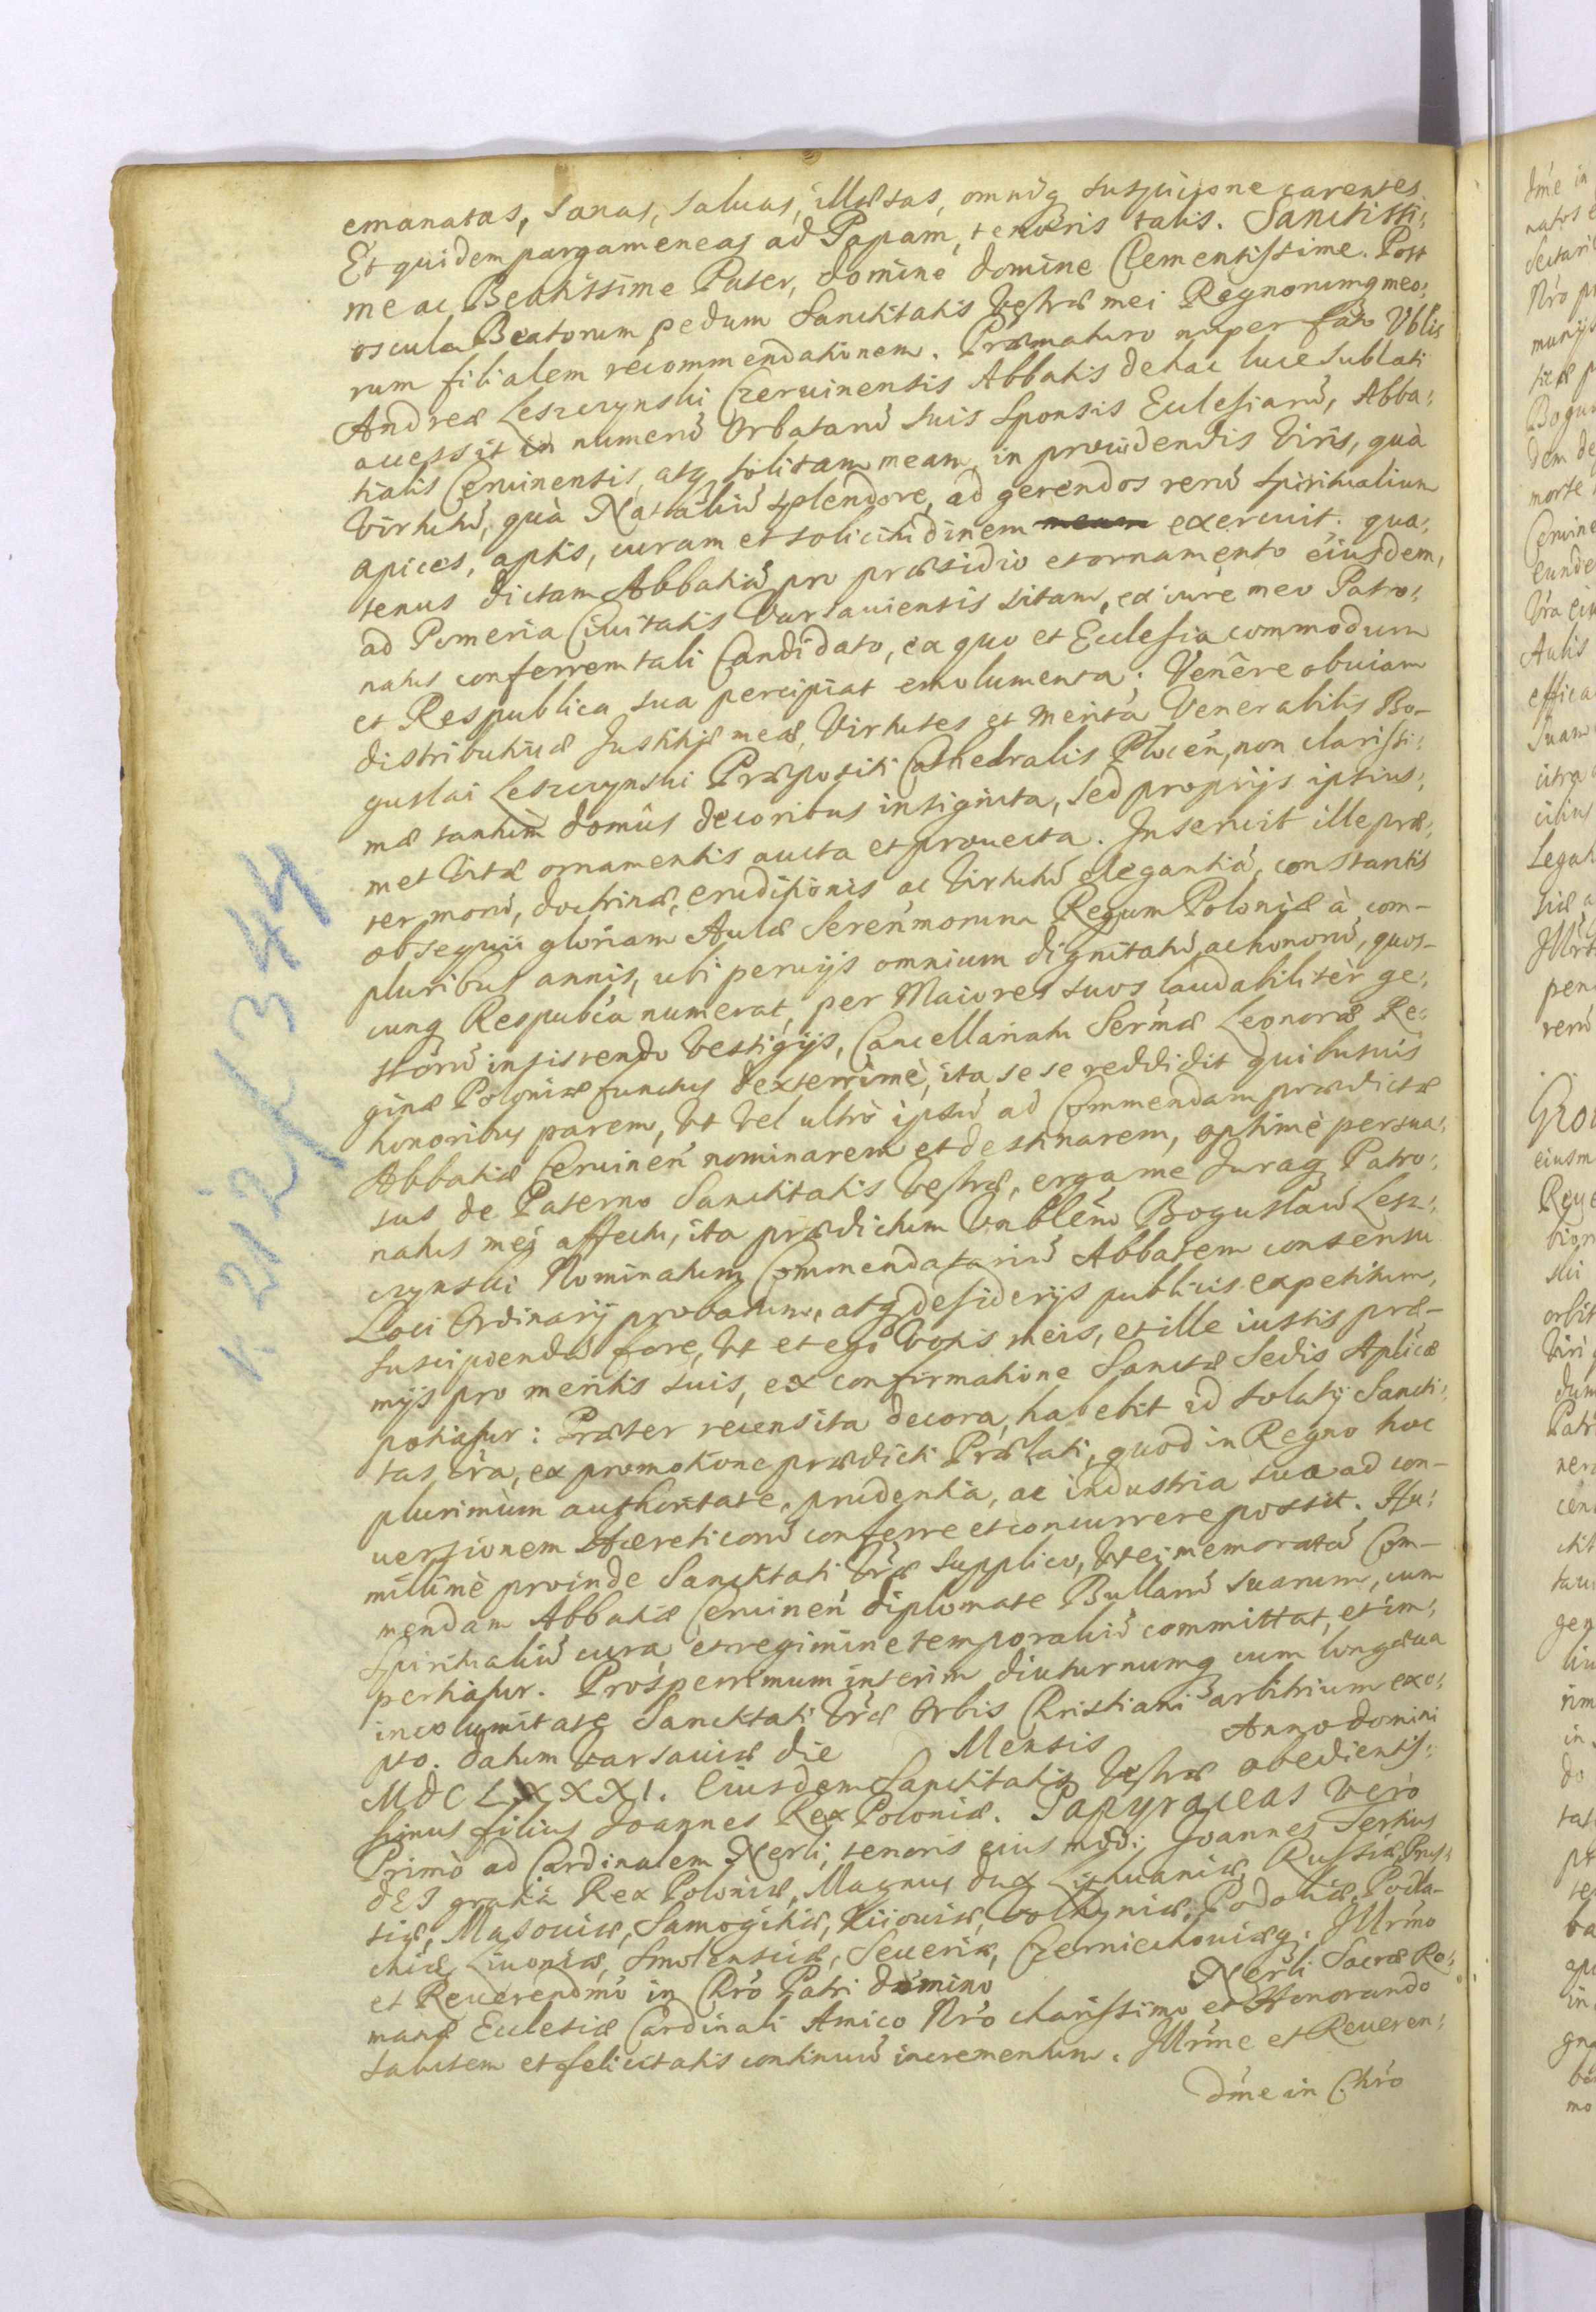 emanatas, sanas, saluas, illæsas, omniq suspicione carentes
Et quidem pargameneas ad Papam, tenoris talis. Sanctissi:
me ac Beatissime Pater, domine domine Clementissime. Post
oscula Beatorum pedum Sanctitatis Vestræ mei Regnorumq meo:
rum filialem recommendationem. Præmaturo nuper fato Vblis
Andreæ Leszczynski Czeruinensis Abbatis dehac luce sublati
accessit in numerū Orbatarū suis Sponsis Ecclesiarū, Abba:
tialis Ceruinensis, atq solitam meam, in prouidendis Viris, quà
Virtutū, quà Nataliū splendore, ad gerendos rerū spiritualium
apices, aptis, curam et solicitudinem meam exercuit. qua:
tenus dictam Abbatiā pro præsidio et ornamento eiusdem,
ad Pomeria Ciuitatis Varsauiensis sitam, ex iure meo Patro:
natus conferrem tali Candidato, ex quo et Ecclesia commodum
et Respublica sua percipiat emolumenta; Venêre obuiam
distributiuæ Justitiæ meæ, Virtutes et merita Venerabilis Bo-
guslai Leszczynski Præpositi Cathedralis Plocen, non clarissi:
mæ tantùm domûs decoribus insignita, sed proprijs ipsius:
met Vitæ ornamentis aucta et prouecta. Inseruit ille præ:
ter morū, doctrinæ, eruditionis ac Virtutū elegantiā, constantis
obsequii gloriam Aulæ Serenmorum Regum Poloniæ à com-
pluribus annis, ubi peruijs omnium dignitatū, ac honorū, quos-
cunq Respubca numerat, per Maiores suos laudabilitèr ge:
storū insistendo Vestigijs, Cancellariatu Sermæ Leonoræ Re:
ginæ Poloniæ functus dexterrimè, ita se se reddidit quibusuis
honoribus parem, Vt Vel ultrò ipsū ad Commendam prædictæ
Abbatiæ Ceruinen nominarem et destinarem, optimè persua:
sus de Paterno Sanctitatis Vestræ, erga me Juraq Patro:
natus mei affectu, ita prædictum Vnblem Boguslaū Lesz:
czynski Nominatum Commendatariū Abbatem consensu
Loci Ordinarij probatum, atq desiderijs publicis expetitum,
suscipiendū fore, Vt et ego Votis meis, et ille iustis præ-
mijs pro meritis suis, ex confirmatione Sanctæ Sedis Aplicæ
potiatur: Præter recensita decora, habebit id solatij Sancti:
tas Vra, ex promotione prædicti Prælati, quod in Regno hoc
plurimùm authoritate, prudentia, ac industria sua ad con-
uersionem Hæreticorū conferre et concurrere possit. Hu:
millimè proinde Sanctitati Vræ supplico, Vt ei memoratā Com-
mendam Abbatiæ Ceruinen diplomate Bullarū suarum, cum
Spiritualiū cura, et regimine temporaliū committat, et im:
pertiatur. Prosperrimum interim diuturnumq cum longæua
incolumitate Sanctitati Vræ Orbis Christiani arbitrium exo:
pto. datum Varsauiæ die Mensis Anno domini
MdCLXXXI. Eiusdem Sanctitatis Vestræ obedientis:
simus filius Joannes Rex Poloniæ. Papyraceas Verò
Primò ad Cardinalem Nerli, tenoris eius mdi: Joannes Tertius
dEI gratia Rex Poloniæ, Magnus dux Lithuaniæ, Russiæ, Prus:
siæ, Masouiæ, Samogitiæ, Kiiouiæ, Volhyniæ, Podoliæ, Podla-
chiæ, Liuoniæ, Smolensciæ, Seueriæ, Czerniechouiæq. Illrmo
et Reuerendmo in Chro Patri domino Nerli Sacræ Ro:
manæ Ecclesiæ Cardinali Amico Nro charissimo et Honorando
salutem et felicitatis continuū incrementum. Illrme et Reueren:
dme in Chro
k. 212/344